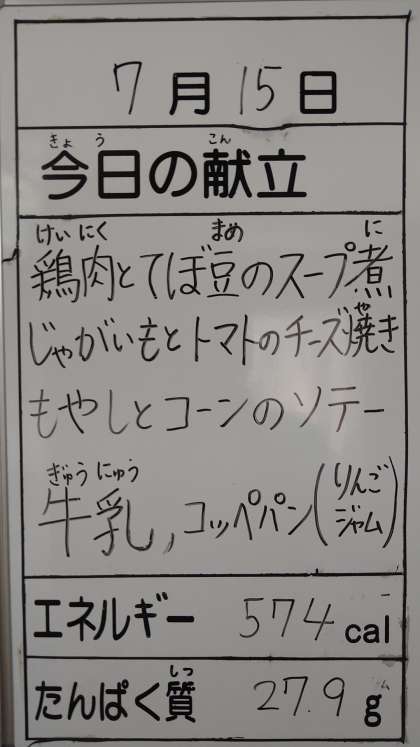 7月15日
きょう こん
今日の献立
けいにく まめ に
鶏肉とてぼ豆のスープ煮
や
じゃがいもとトマトのチーズ焼き
もやしとコーンのソテー
ぎゅうにゅう
牛乳,コッペパン(りんごジャム)
エネルギー 574 cal
しつ
たんぱく質 27.9 g